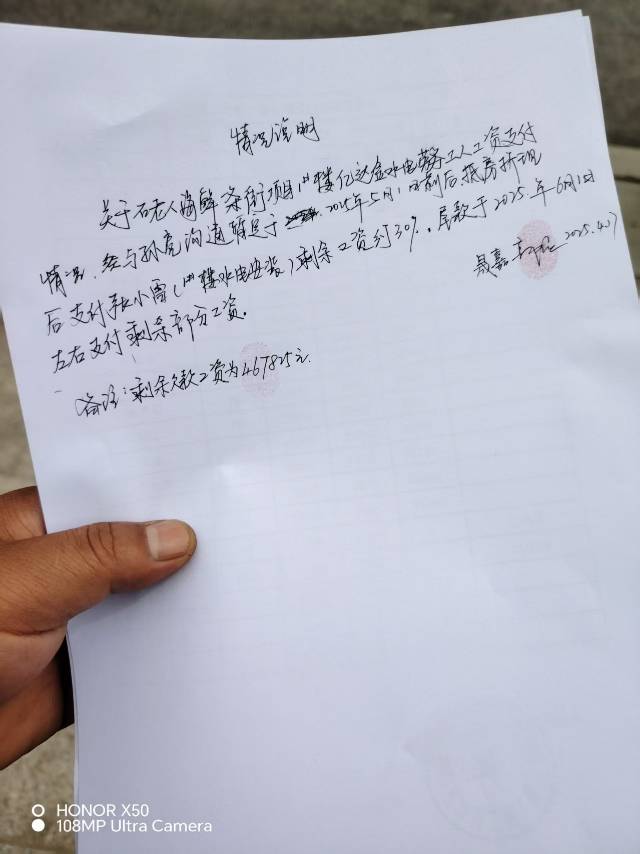 情况说明
关于石老人海鲜条街项目1#楼亿达鑫水电劳务工人工资支付
情况,经与孙亮沟通暂定于 2025年5月1日前后,抵房折现
后支付张小雷(1#楼水电安装)剩余工资约30%。尾款于2025.年6月15日
左右支付剩余部分工资。
晟嘉 2025.4.7
备注:剩余欠款工资为467825元.
HONOR X50
108MP Ultra Camera